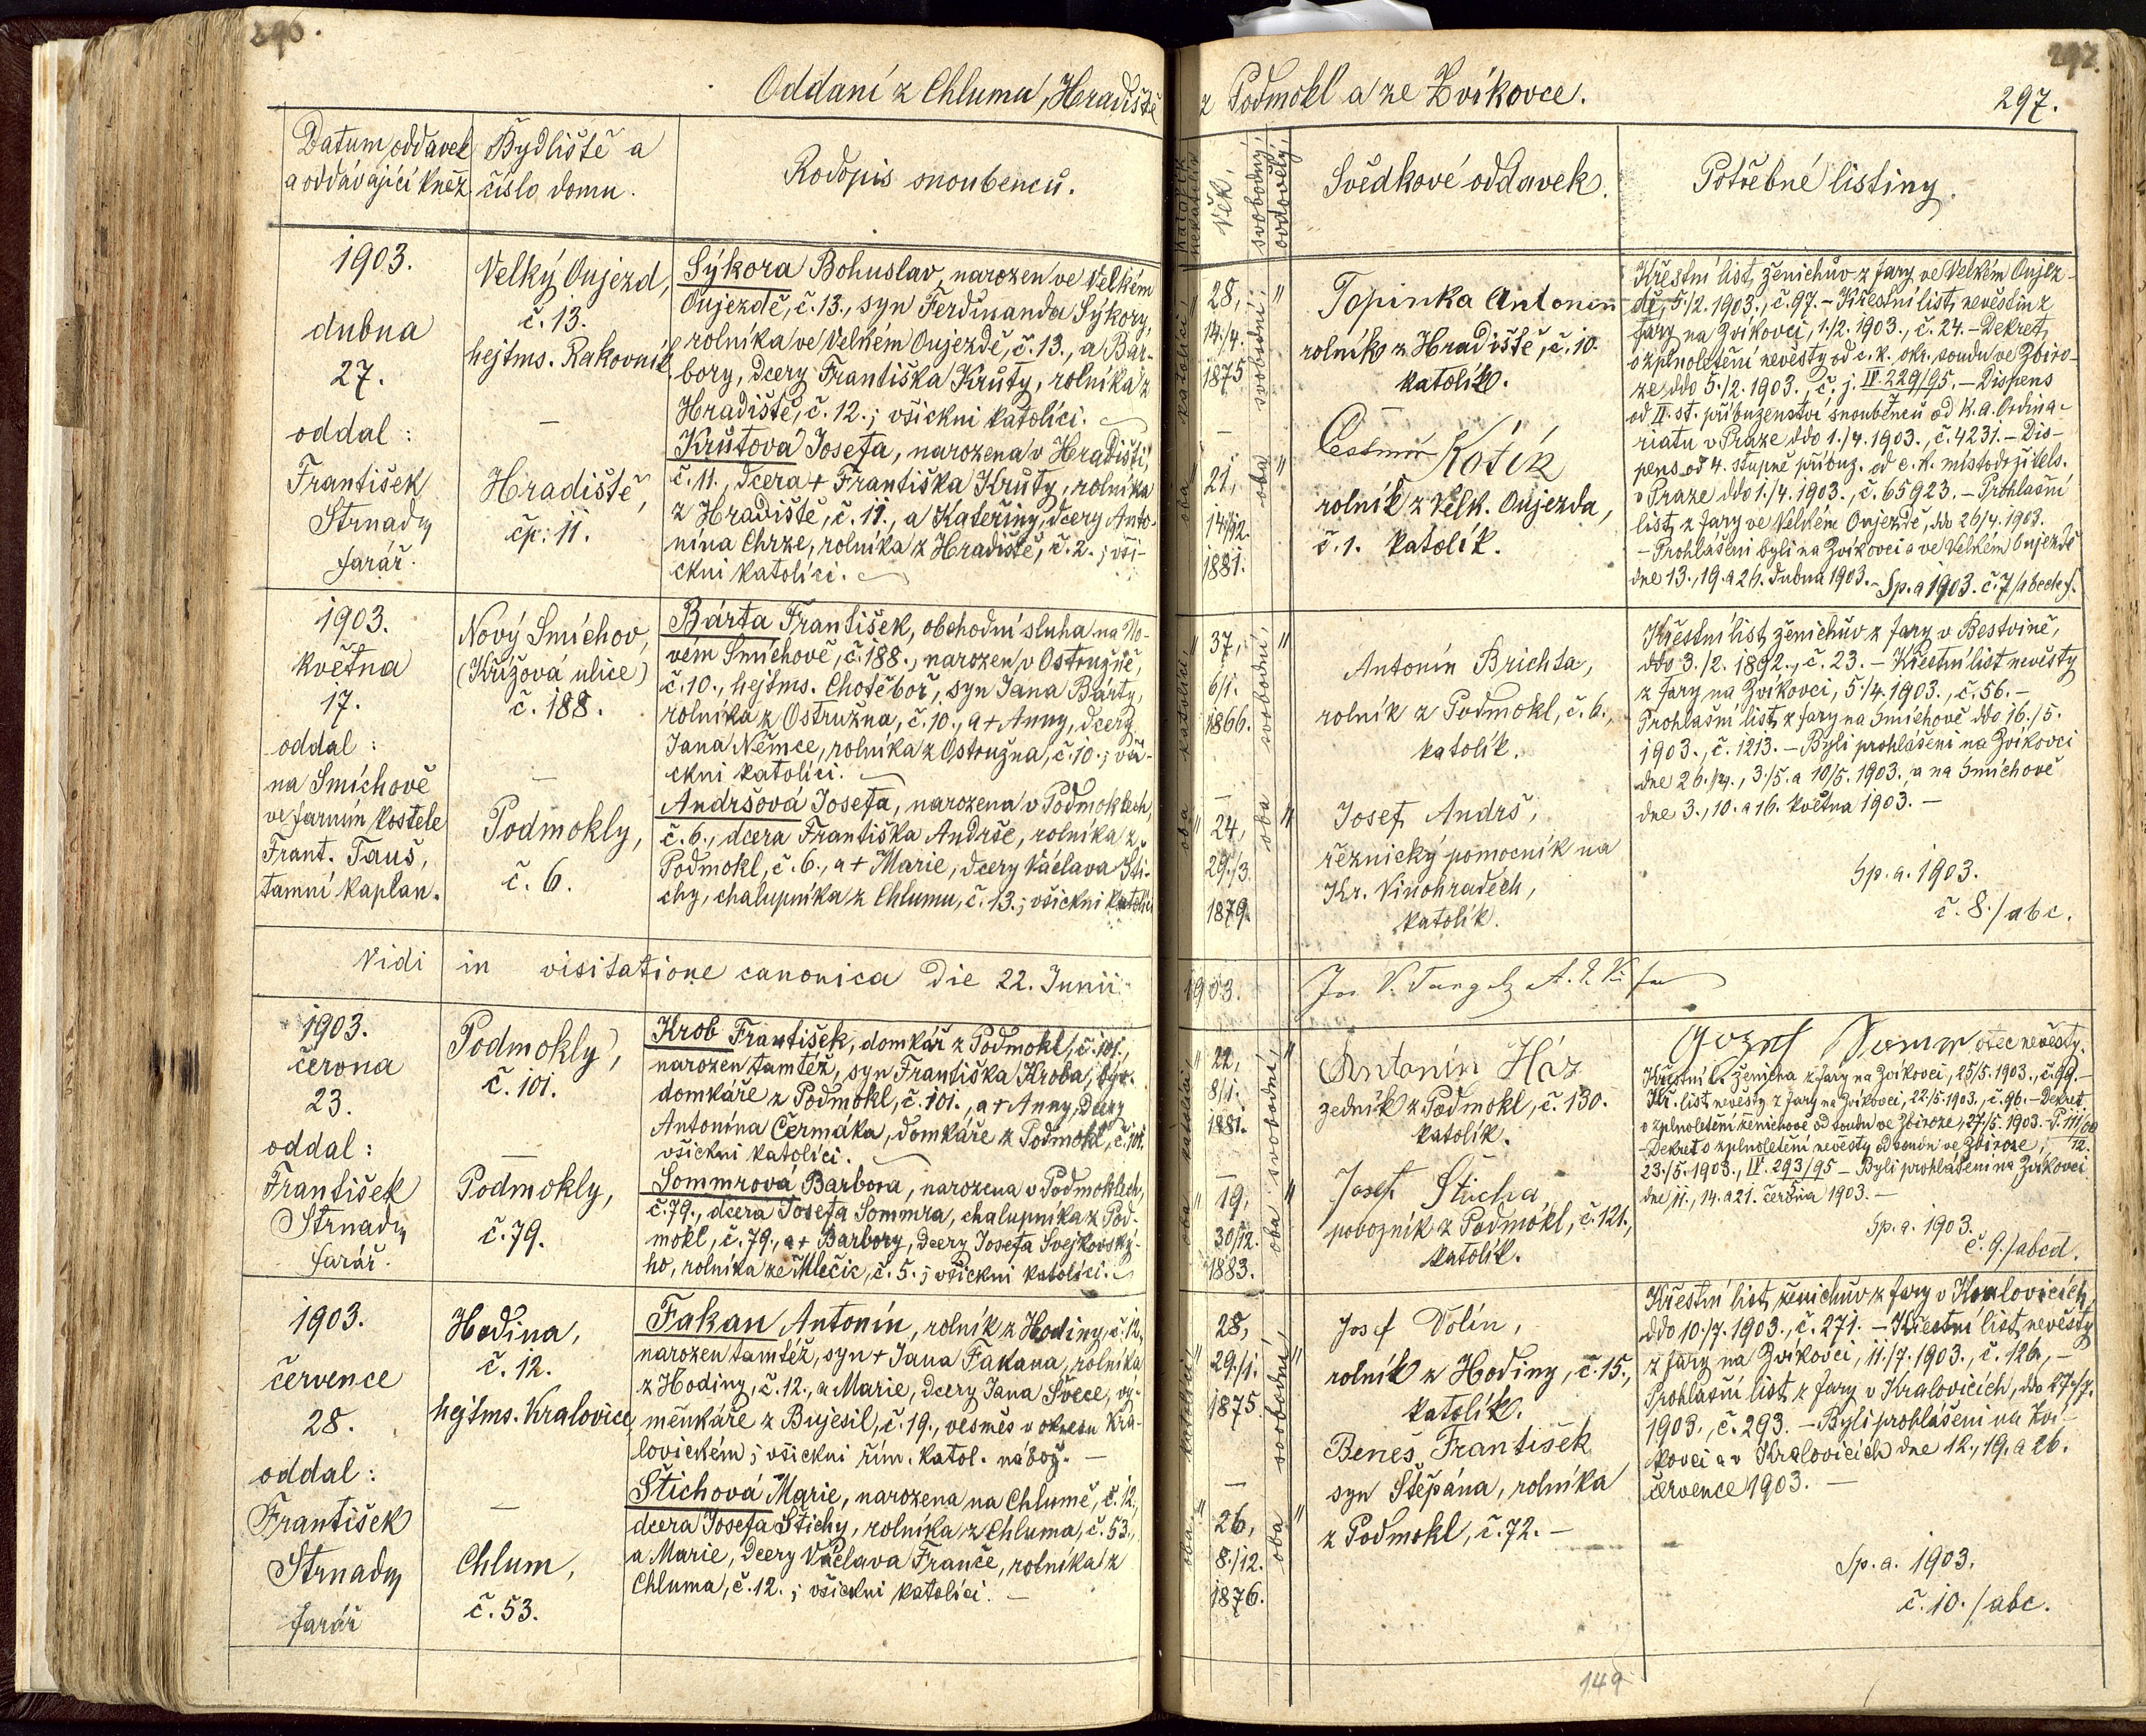 296.
Oddaní z Chlumu, Hradiště
Datum oddavek
a oddávající kněz.
Bydliště a
číslo domu.
Rodopis snoubenců.
1903.
dubna
27.
oddal:
František
Strnad
farář.
Velký Oujezd,
č. 13.
hejtms. Rakovník
—
Hradiště,
čp. 11.
Sýkora Bohuslav, narozen ve Velkém
Oujezdě, č. 13., syn Ferdinanda Sýkory,
rolníka ve Velkém Oujezdě, č. 13., a Bar-
bory, dcery Františka Krůty, rolníka z
Hradiště, č. 12.; všickni katolíci.
Krůtova Josefa, narozena v Hradišti,
č. 11., dcera + Františka Krůty, rolníka
z Hradiště, č. 11., a Kateřiny, dcery Anto-
nína Chrze, rolníka z Hradiště, č. 2.; vši-
ckni katolíci.
1903.
května
17.
oddal:
na Smíchově
ve farním kostele
Frant. Tauš,
tamní kaplan.
Nový Smíchov,
(Křížová ulice)
č. 188.
—
Podmokly,
č. 6.
Bárta František, obchodní sluha na No-
vém Smíchově, č. 188., narozen v Ostružně,
č. 10., hejtms. Chotěboř, syn Jana Bárty,
rolníka z Ostružna, č. 10., a + Anny, dcery
Jana Němce, rolníka z Ostružna, č. 10.; vši-
ckni katolíci.
Andršová Josefa, narozena v Podmoklech,
č. 6., dcera Františka Andrše, rolníka z
Podmokl, č. 6., a + Marie, dcery Václava Šti-
chy, chalupníka z Chlumu, č. 13.; všickni katolíci
Vidi in visitatione canonica die 22. Junii
1903.
června
23.
oddal:
František
Strnad
farář.
Podmokly,
č. 101.
—
Podmokly,
č. 79.
Krob František, domkář z Podmokl, č. 101.,
narozen tamtéž, syn Františka Kroba, býv.
domkáře z Podmokl, č. 101., a + Anny, dcery
Antonína Čermáka, domkáře z Podmokl, č. 101.
všickni katolíci.
Sommrová Barbora, narozena v Podmoklech,
č. 79., dcera Josefa Sommra, chalupníka z Pod-
mokl, č. 79., a + Barbory, dcery Josefa Svejkovský-
ho, rolníka ze Mlečic, č. 5.; všickni katolíci.
1903.
července
28.
oddal:
František
Strnad
farář
Hodina,
č. 12.
hejtms. Kralovice
—
Chlum,
č. 53.
Fakan Antonín, rolník z Hodiny, č. 12,
narozen tamtéž, syn + Jana Fakana, rolníka
z Hodiny, č. 12., a Marie, dcery Jana Švece, vý-
měnkáře z Bujesil, č. 19., vesměs v okresu Kra-
lovickém; všickni řím. katol. nábož. —
Štichová Marie, narozena na Chlumě, č. 12.,
dcera Josefa Štichy, rolníka z Chluma, č. 53.,
a Marie, dcery Václava Franče, rolníka z
Chluma, č. 12.; všickni katolíci. —
297.
z Podmokl a ze Zvíkovce.
297.
katolík
nekatolík
Věk.
svobodný,
ovdovělý,
Svědkové oddavek.
Potřebné listiny.
oba katolíci
28,
14./4.
1875
—
21,
14/12.
1881.
oba svobodní
Topinka Antonín
rolník z Hradiště, č. 10.
katolík.
Čestmír Kotík
rolník z Velk. Oujezda,
č. 1. katolík.
Křestní list ženichův z fary ve Velkém Oujez-
dě, 5./2. 1903., č. 97. – Křestní list nevěstin z
fary na Zvíkovci, 1./2. 1903., č. 24. – Dekret
o zplnoletění nevěsty od c. k. okr. soudu ve Zbiro-
ze ddo 5./2. 1903., č. j. IV. 229/95. – Dispens
od II. st. příbuzenství snoubenců od k. a. Ordina-
riatu v Praze ddo 1./4. 1903., č. 4231. – Dis-
pens od 4. stupně příbuz. od c. k. místodržitels.
v Praze ddo 1./4. 1903., č. 65923. – Prohlašní
list z fary ve Velkém Oujezdě, ddo 26/4. 1903.
– Prohlášeni byli na Zvíkovci a ve Velkém Oujezdě
dne 13., 19. a 26. dubna 1903. – Sp. a 1903. č. 7/abcdef.
oba katolíci
37,
6/1.
1866.
—
24,
29./3.
1879.
oba svobodní
Antonín Brichta,
rolník z Podmokl, č. 6.,
katolík.
Josef Andrš,
řeznický pomocník na
Kr. Vinohradech,
katolík.
Křestní list ženichův z fary v Bestvině,
ddo 3./2. 1892., č. 23. – Křestní list nevěsty
z fary na Zvíkovci, 5./4. 1903., č. 56. –
Prohlašní list z fary na Smíchově ddo 16./5.
1903., č. 1213. – Byli prohlášeni na Zvíkovci
dne 26./4., 3./5. a 10/5. 1903. a na Smíchově
dne 3., 10. a 16. května 1903. –
Sp. a. 1903.
č. 8./abc.
1903.
oba katolíci
22,
8/1.
1881.
—
19,
30/12.
1883.
oba svobodní
Antonín Ház
zedník z Podmokl, č. 130.
katolík.
Josef Štícha
povozník z Podmokl, č. 121.,
katolík.
Jozef Somr otec nevěsty.
Křestní l. ženicha z fary na Zvíkovci, 25/5. 1903., č. 99. –
Kř. list nevěsty z fary na Zvíkovci, 22./5. 1903., č. 96. – Dekret
o zplnoletění ženichově od soudu ve Zbiroze, 27./5. 1903. P. 111/00
– Dekret o zplnoletění nevěsty od soudu ve Zbiroze, 12.
23./5. 1903., IV. 293/95 – Byli prohlášeni na Zvíkovci
dne 11., 14. a 21. června 1903. –
Sp. a. 1903.
č. 9./abcd.
oba katolíci
28,
29./1.
1875
—
26,
8./12.
1876.
oba svobodní
Josef Dolín,
rolník z Hodiny, č. 15.,
katolík.
Beneš František
syn Štěpána, rolníka
z Podmokl, č. 72. –
Křestní list ženichův z fary v Kralovicích,
ddo 10./7. 1903., č. 271. – Křestní list nevěsty
z fary na Zvíkovci, 11./7. 1903., č. 126, –
Prohlašní list z fary v Kralovicích, ddo 27./7.
1903., č. 293. – Byli prohlášeni na Zví-
kovci a v Kralovicích dne 12., 19. a 26.
července 1903. –
Sp. a. 1903.
č. 10./abc.
149